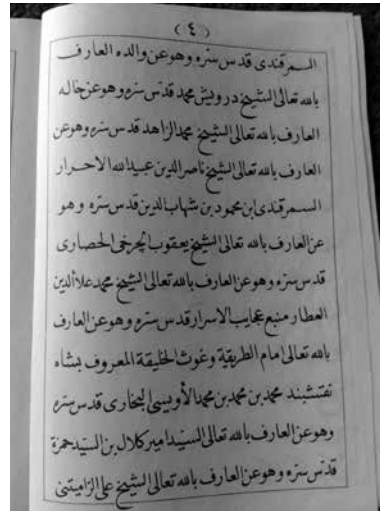 (٤)
السمرقندى قدس سره وهو عن والده العارف
بالله تعالى الشيخ درويش محمد قدس سره وهو عن خاله
العارف بالله تعالى الشيخ محمد الزاهد قدس سره وهو عن
العارف بالله تعالى الشيخ ناصر الدين عبيد الله الاحرار
السمرقندى ابن محمود بن شهاب الدين قدس سره وهو
عن العارف بالله تعالى الشيخ يعقوب الجرخى الحصارى
قدس سره وهو عن العارف بالله تعالى الشيخ محمد علاء الدين
العطار منبع عجايب الاسرار قدس سره وهو عن العارف
بالله تعالى امام الطريقة وغوث الخليقة المعروف بشاه
نقشبند محمد بن محمد بن محمد الأويسى البخارى قدس سره
وهو عن العارف بالله تعالى السيد امير كلال بن السيد حمزة
قدس سره وهو عن العارف بالله تعالى الشيخ على الراميتنى